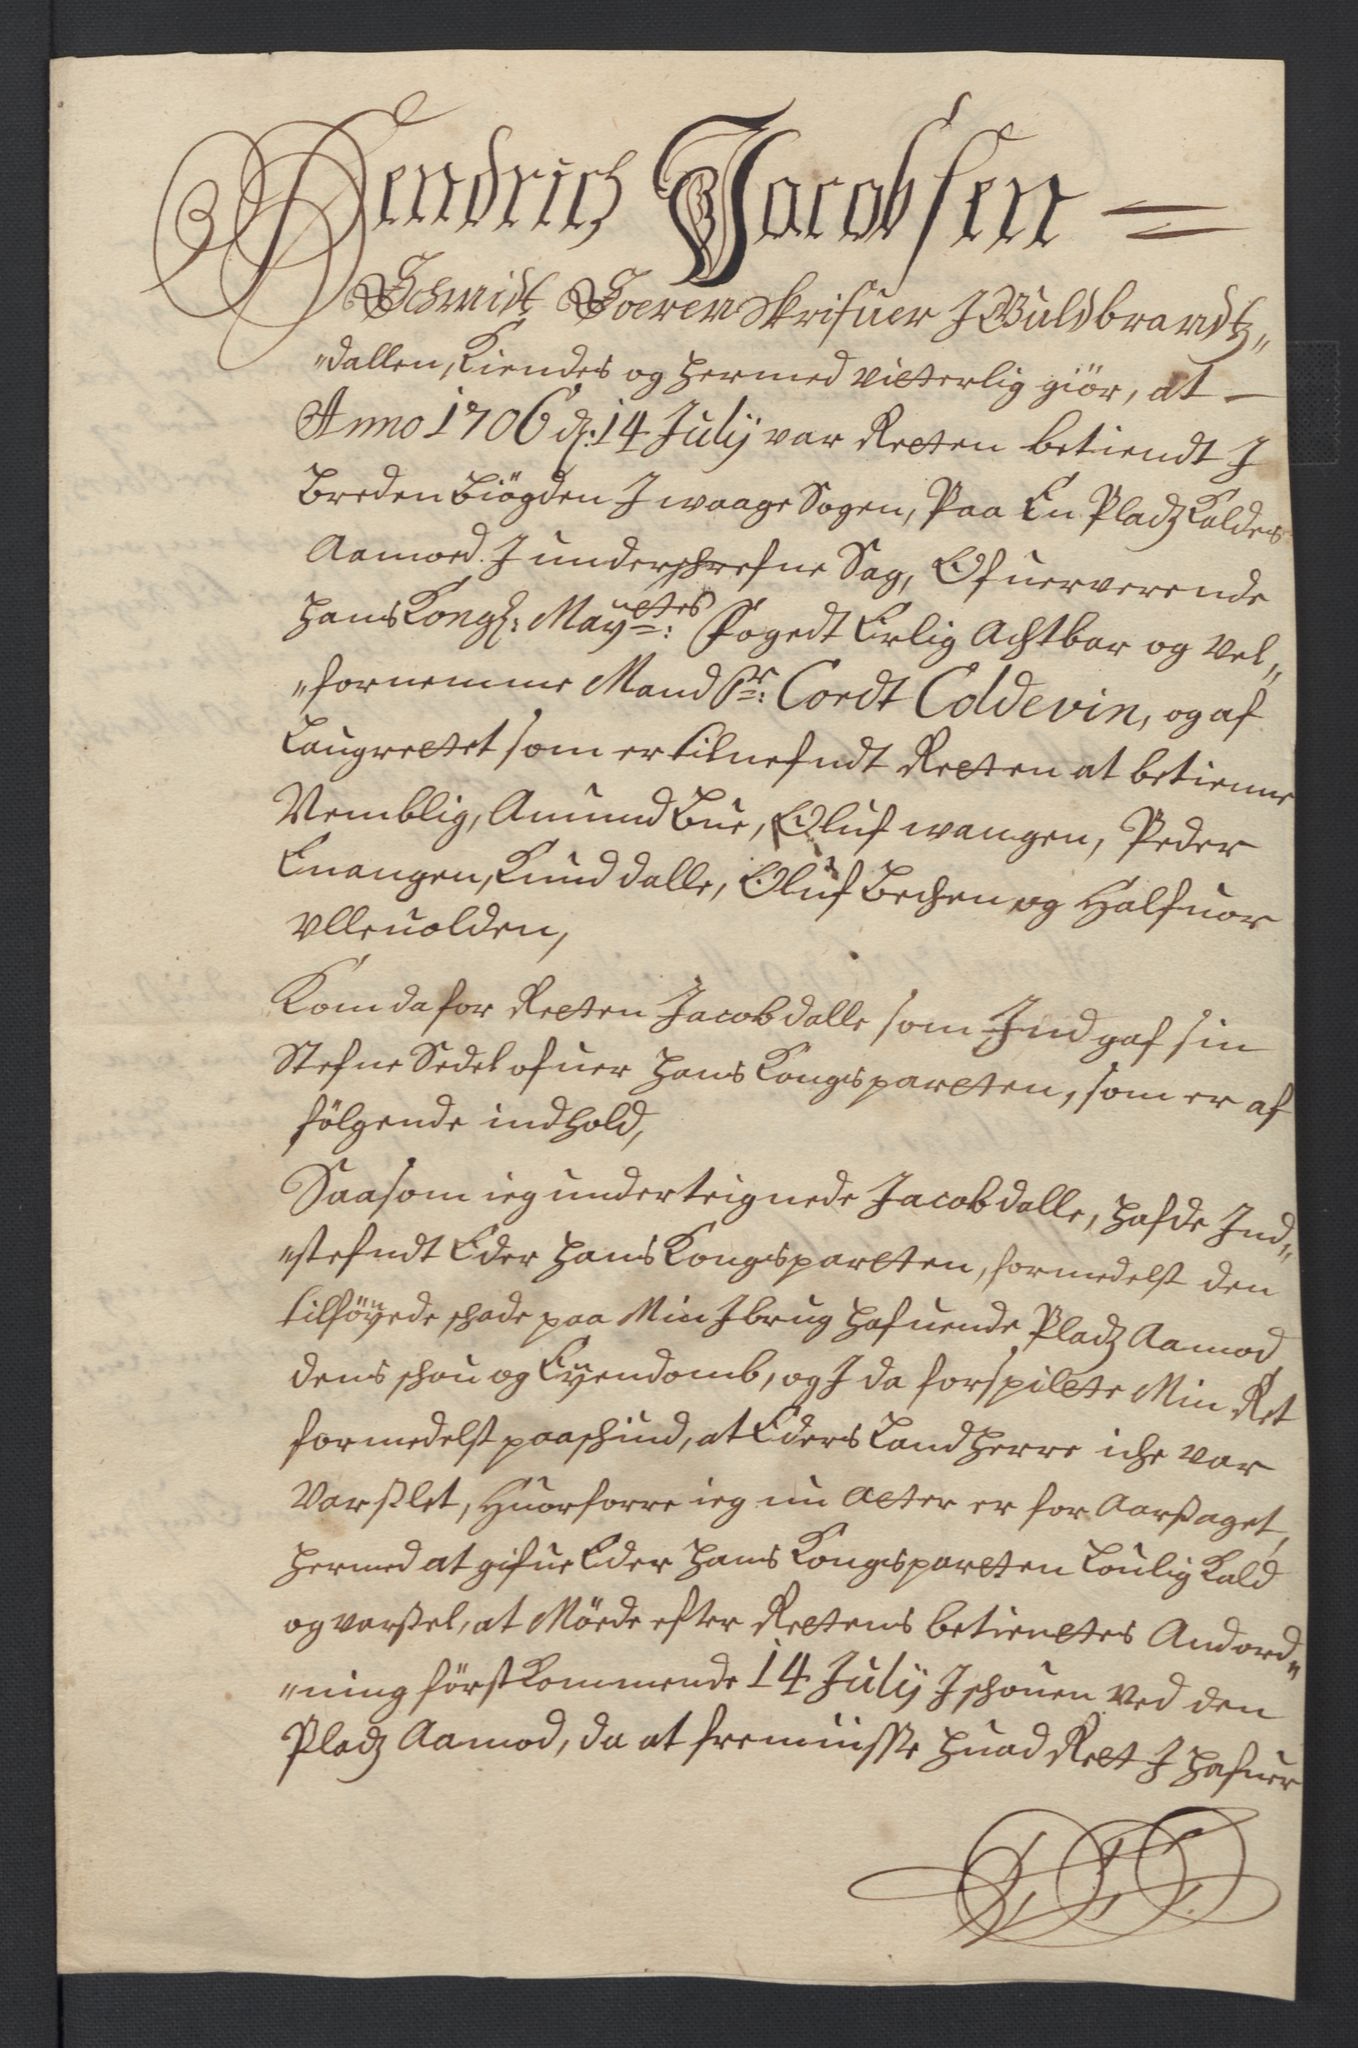 Hendrich Jacobsen =
Schmidt Soerenskrifuer J Guldbrandtz„
„dallen, Kiendes og hermed vitterlig giör, at —
Anno 1706 d: 14 Julij var Retten betiendt J
breden biögden J waage Sogen, Paa En Pladz Kaldes
Aamoed. J underschrefne Sag, Ofuerverende
hans Kongl: Mayttes: Fogedt Erlig Achtbar og Vel„
„fornemme Mand Sr: Cordt Coldevin, og af
Laugrettet som er tilnefndt Retten at betienne
Nemblig, Amund bue, Oluf wangen, Peder
Enangen, Knud dalle, Oluf bechen og Halfuor
Ulleuolden,
Kom da for Retten Jacob dalle som Ind gaf sin
Stefne Sedel ofuer hans Kongsparten, som er af
fölgende indhold,
Saasom ieg underteignede Jacob dalle, hafde Ind„
„stefndt Eder hans Kongsparten, formedelst den
tilföyede schade paa Min J brug hafuende Pladz Aamod,
dens schou og Eyendomb, og J da forspilte Min Ret
formedelst paaschud, at Eders Landherre iche var
Varslet, Huorforre ieg nu atter er for Aarsaget,
hermed at gifue Eder hans Kongsparten Loulig Kald
og varsel, at Möede efter Rettens betienttes Andord„
„ning först Kommende 14 Julij J schouen ved den
Pladz Aamod, da at fremuisse huad Rett J hafuer